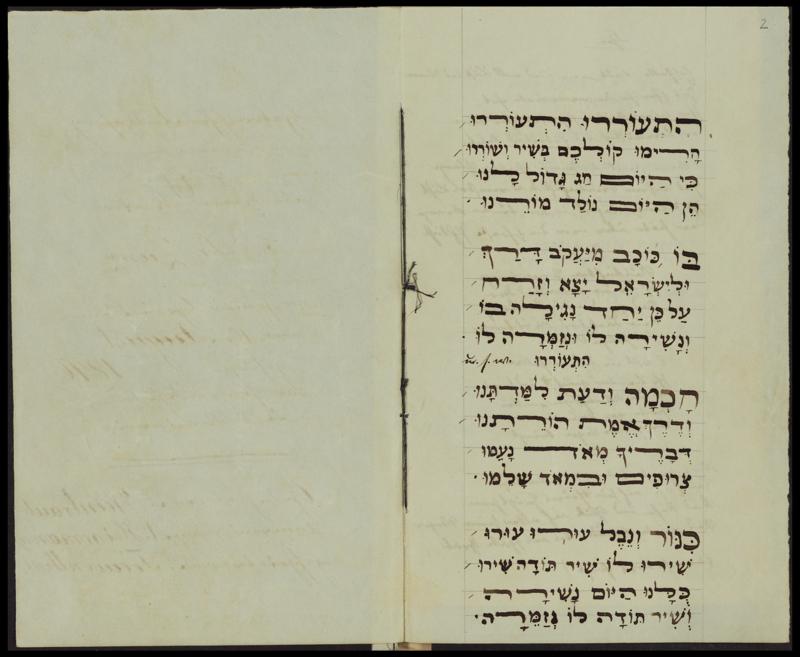 2
הִתְעוֹרְרוּ הִתְעוֹרְרוּ
הָרִימוּ קוֹלְכֶם בְּשִׁיר וְשׁוֹרְרוּ
כִּי הַיּוֹם חַג גָּדוֹל לָנוּ
הֵן הַיּוֹם נוֹלַד מוֹרֵנוּ
בּוֹ כּוֹכָב מִיַּעֲקֹב דָּרַךְ
וּלְיִשְׂרָאֵל יָצָא וְזָרַח
עַל כֵּן יַחַד נָגִילָה בוֹ
וְנָשִׁירָה לוֹ וּנְזַמְּרָה לוֹ
הִתְעוֹרְרוּ u. s. w.
חָכְמָה וְדַעַת לִמַּדְתָּנוּ
וְדֶרֶךְ אֱמֶת הוֹרֵתָנוּ
דְּבָרֶיךָ מְאֹד נָעֵמוּ
צְרוּפִים וּבִמְאֹד שָׁלֵמוּ
כִּנּוֹר וְנֵבֶל עוּרוּ עוּרוּ
שִׁירוּ לוֹ שִׁיר תּוֹדָה שִׁירוּ
כֻּלָּנוּ הַיּוֹם נָשִׁירָה
וְשִׁיר תּוֹדָה לוֹ נְזַמֵּרָה